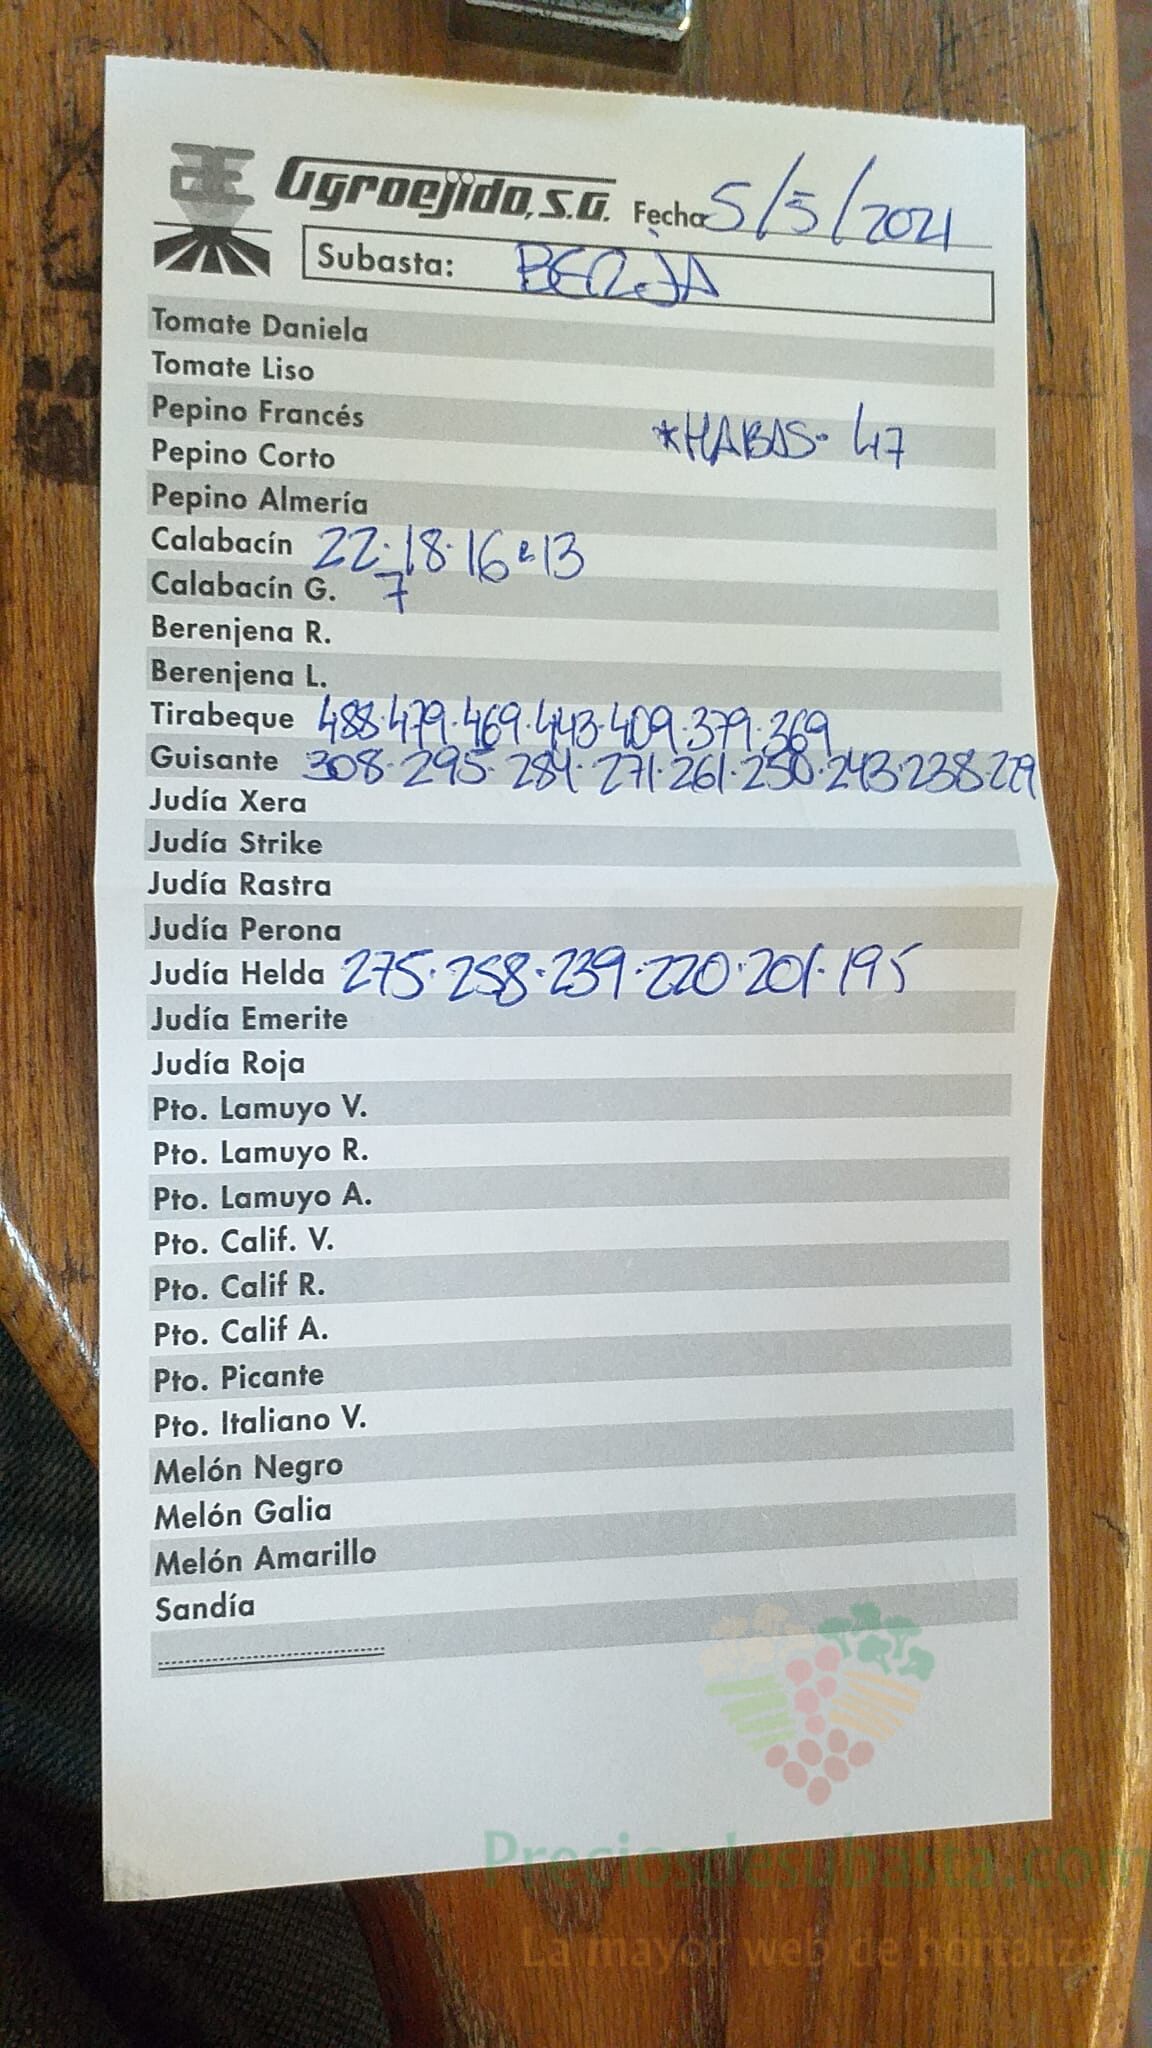 Agroejido, S.A. Fecha 5/5/2021
Subasta: BERJA
Tomate Daniela
Tomate Liso
Pepino Francés
*HABAS- 47
Pepino Corto
Pepino Almería
Calabacín 22·18·16·13
Calabacín G. 7
Berenjena R.
Berenjena L.
Tirabeque 488·479·469·443·409·379·369
Guisante 308·295·284·271·261·250·243·238·229
Judía Xera
Judía Strike
Judía Rastra
Judía Perona
Judía Helda 275·258·239·220·201·195
Judía Emerite
Judía Roja
Pto. Lamuyo V.
Pto. Lamuyo R.
Pto. Lamuyo A.
Pto. Calif. V.
Pto. Calif R.
Pto. Calif A.
Pto. Picante
Pto. Italiano V.
Melón Negro
Melón Galia
Melón Amarillo
Sandía
Preciosdesubasta.com
La mayor web de hortaliza